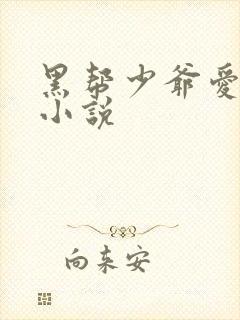 黑帮少爷爱
小說
向东安